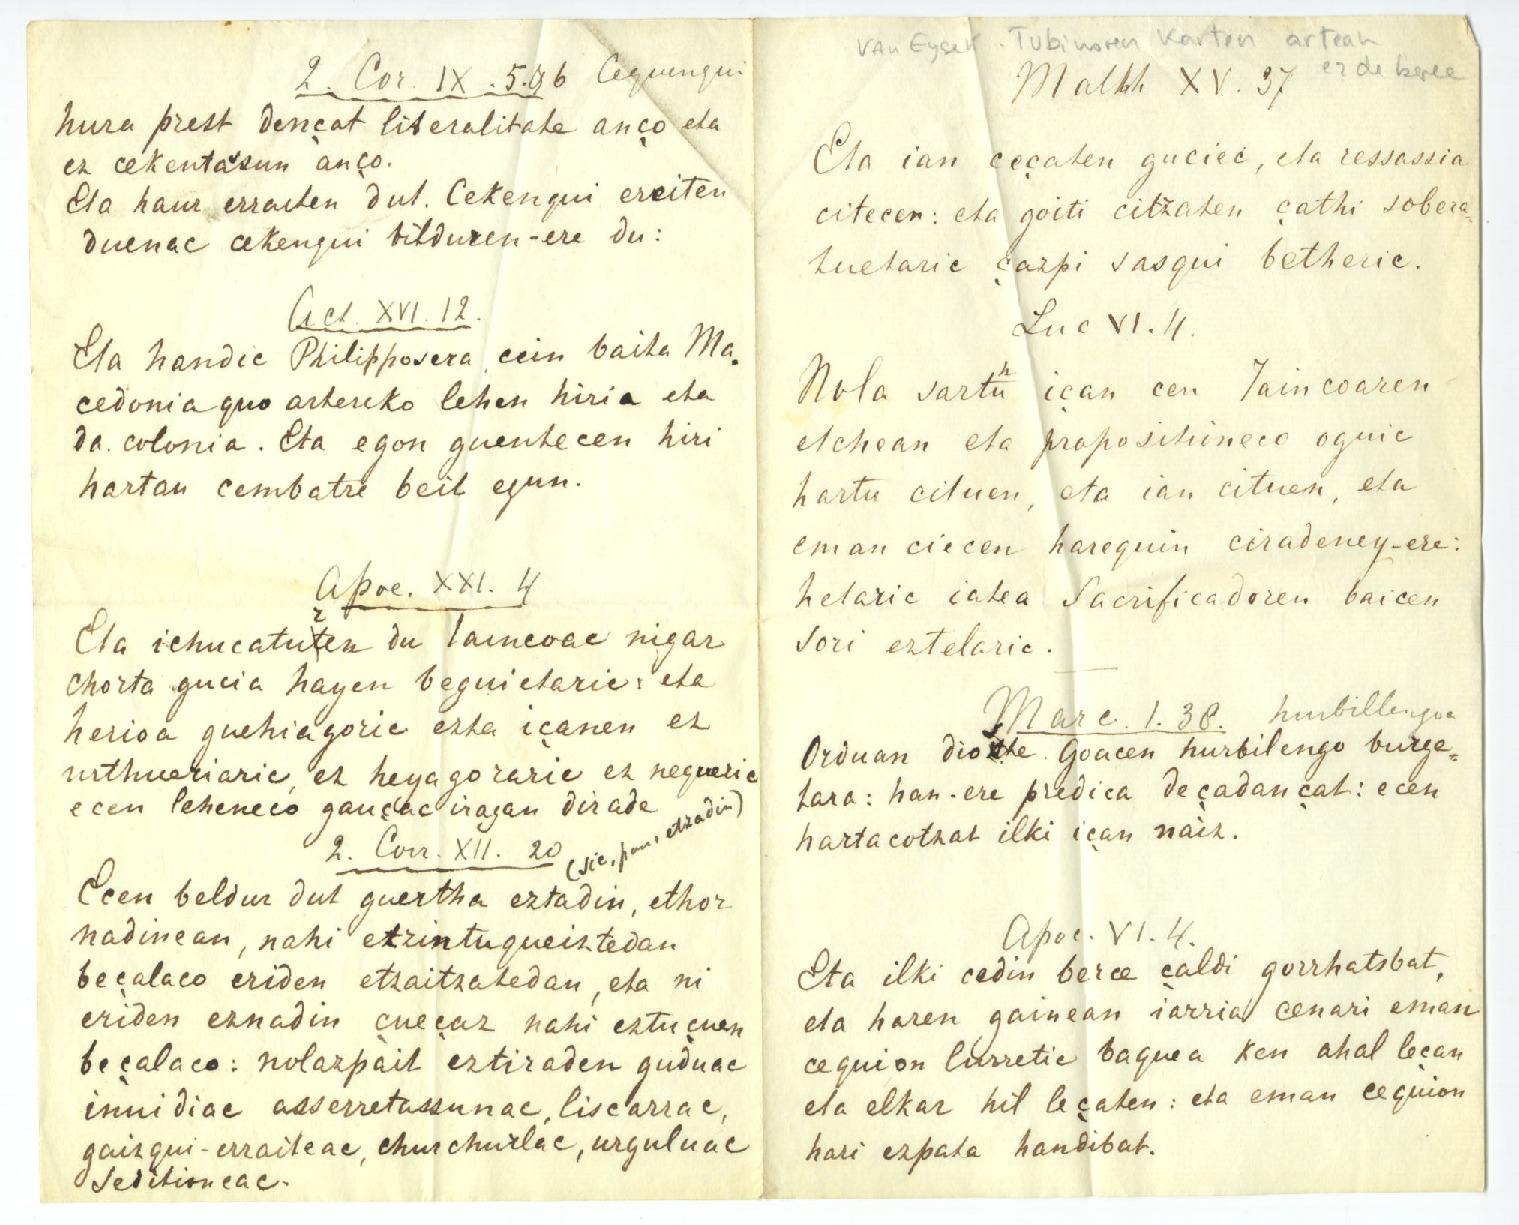 2. Cor. IX. 5.96 Cequengui
hura prest dençat liberalitate anço eta
ez cekentassun anço.
Eta haur erraiten dut. Cekengui ereiten
duenac cekengui bilduren-ere du:
Act. XVI. 12.
Eta handic Philipposera, cein baita Ma-
cedonia quo artereko lehen hiria eta
da colonia. Eta egon guentecen hiri
hartan cembatre beit egun.
Apoc. XXI. 4
Eta ichucaturen du Iaincoac nigar
chorta gucia hayen beguietaric: eta
herioa guehiagoric ezta içanen ez
urthueriaric, ez heyagoraric ez negueric
ecen leheneco gauçac iragan dirade
2. Corr. XII. 20 (sic, pour, etzadin)
Ecen beldur dut guertha eztadin, ethor
nadinean, nahi etzintuqueiztedan
beçalaco eriden etzaitzatedan, eta ni
eriden eznadin çueçaz nahi eztuçuen
beçalaco: nolazpait eztiraden guduac
inuidiac asserretassunac, liscarrac,
gaizqui-erraiteac, churchurlac, urguluac
Seditioneac.
Van Eysek. Tubinoren Karten artean
ez de berec
Matth XV. 37
Eta ian ceçaten guciec, eta ressassia
citecen: eta goiti citzaten çathi sobera-
tuetaric çazpi sasqui betheric.
Luc VI. 4.
Nola sarthu içan cen Iaincoaren
etchean eta propositioneco oguic
hartu cituen, eta ian cituen, eta
eman ciecen harequin ciradeney-ere:
hetaric iatea Sacrificadoren baicen
sori eztelaric.
Marc. 1. 38. hurbillengoa
Orduan dioste Goacen hurbilengo burge-
tara: han-ere predica deçadançat: ecen
hartacotzat ilki içan naiz.
Apoc. VI. 4.
Eta ilki cedin berce çaldi gorrhatsbat,
eta haren gainean iarria cenari eman
cequion lurretic baquea ken ahal leçan
eta elkar hil leçaten: eta eman cequion
hari ezpata handibat.